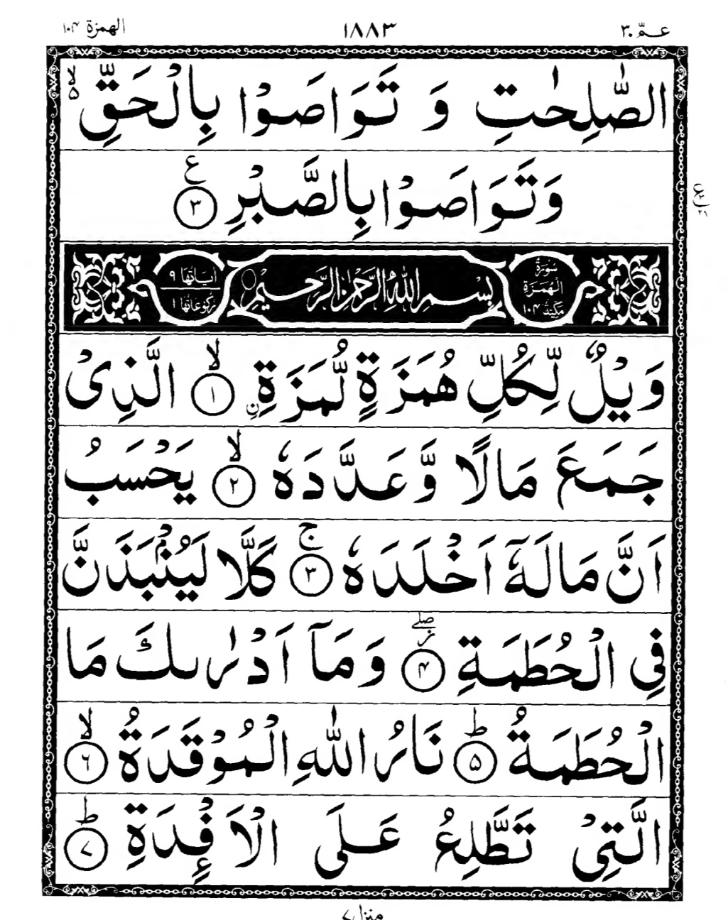 عـمّ ٣٠ ١٨٨٣ الهمزة ١٠٤
الصّٰلِحٰتِ وَ تَوَاصَوْا بِالْحَقِّ ۙ۬۵
وَتَوَاصَوْا بِالصَّبْرِ ۠ ع ٣
سُوْرَةُ الْهُمَزَةِ مَكِّيَّةٌ ١٠٤ بِسْمِ اللّٰهِ الرَّحْمٰنِ الرَّحِيْمِ اٰيَاتُهَا ٩ رُكُوْعَاتُهَا ١
وَيْلٌ لِّكُلِّ هُمَزَةٍ لُّمَزَةِ ۙ ن ١ الَّذِیْ
جَمَعَ مَالًا وَّعَدَّدَهٗ ۙ ٢ يَحْسَبُ
اَنَّ مَالَهٗۤ اَخْلَدَهٗ ۚ ٣ كَلَّا لَيُنْۢبَذَنَّ
فِی الْحُطَمَةِ ٤ وَمَاۤ اَدْرٰىكَ مَا
الْحُطَمَةُ ؕ ۵ نَارُ اللّٰهِ الْمُوْقَدَةُ ۙ ٦
الَّتِیْ تَطَّلِعُ عَلَی الْاَفْـِٕدَةِ ؕ ٧
منزل ٧